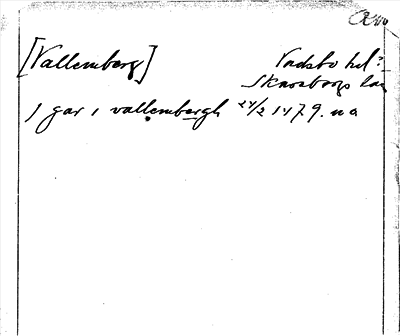 [Vallemberg] Vadsbo hd?
Skaraborgs län
J gar i vallembergh 24/2 1479. na